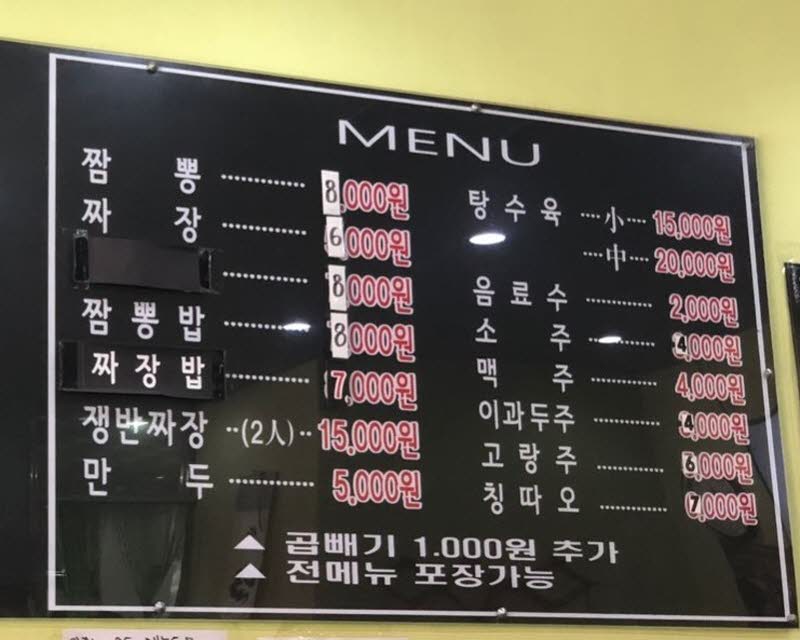 MENU
짬 뽕 ············ 8,000원
짜 장 ············ 6,000원
············ 8,000원
짬 뽕 밥 ············ 8,000원
짜 장 밥 ············ 7,000원
쟁반짜장 ··(2人)·· 15,000원
만 두 ············ 5,000원
탕 수 육 ···· 小 ··· 15,000원
··· 中 ··· 20,000원
음 료 수 ············ 2,000원
소 주 ············ 4,000원
맥 주 ············ 4,000원
이과두주 ············ 4,000원
고 량 주 ············ 6,000원
칭 따 오 ············ 7,000원
▲ 곱빼기 1.000원 추가
▲ 전메뉴 포장가능